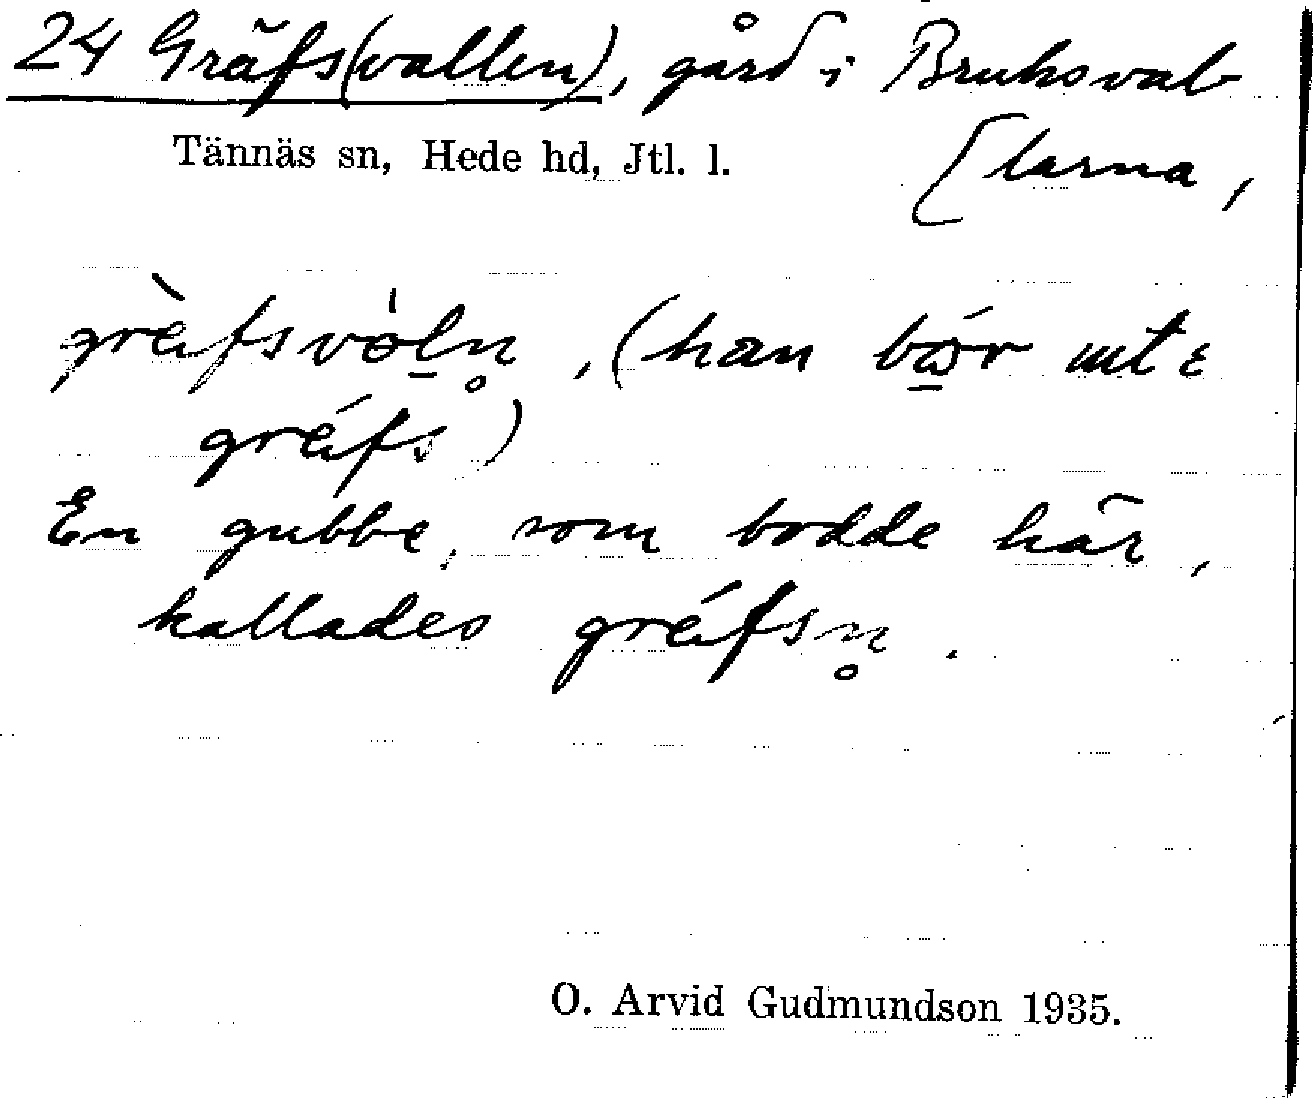 24 Gräfs(vallen), gård i Bruksval-
Tännäs sn, Hede hd, Jtl. l.
[larna,
grèfsvòḷn̥, (han bor int ε
gréfs)
En gubbe, som bodde här,
kallades gréfsn̥.
O. Arvid Gudmundson 1935.